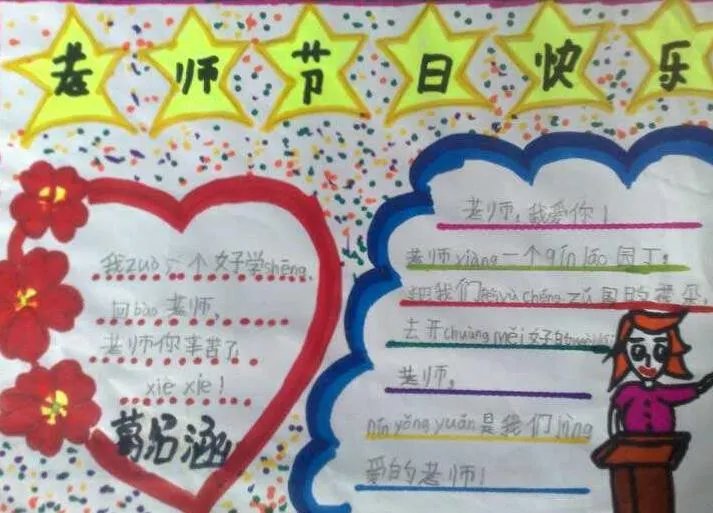 老师节日快乐
我zuò一个好学shēng,
回bào老师。
老师你辛苦了
xiè xiè!
老师,我爱你!
老师xiàng一个qín láo园丁。
把我们 国的花朵。
去开chuàng měi好的
老师。
nín yǒng yuǎn是我们jìng
爱的老师!